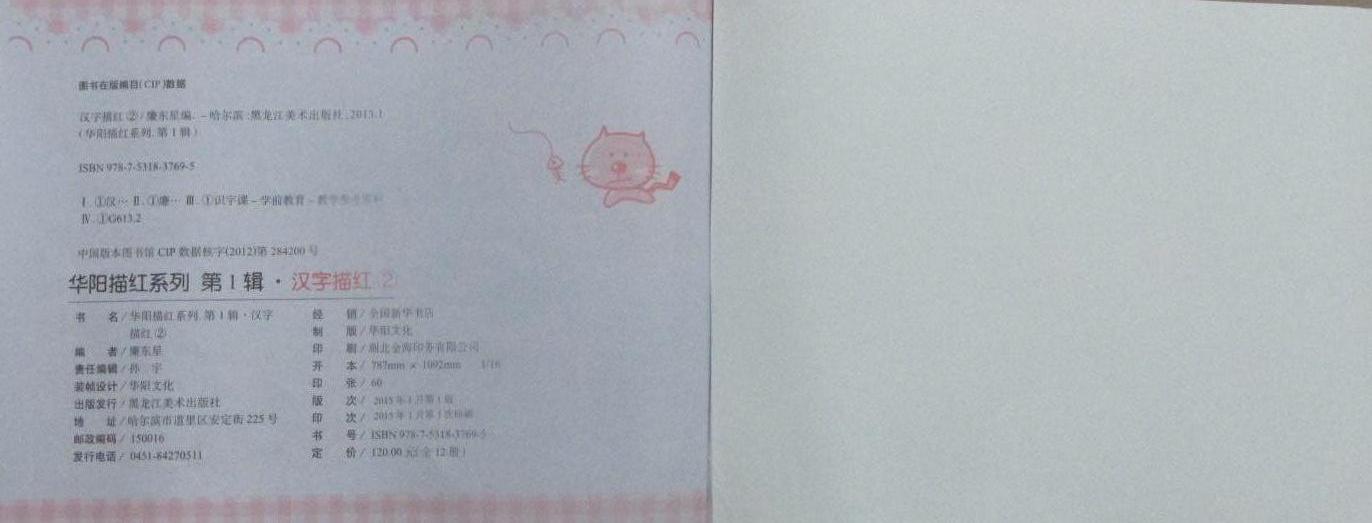 图书在版编目(CIP)数据
汉字描红②/廉东星编. –哈尔滨:黑龙江美术出版社,2015.1
(华阳描红系列.第1辑)
ISBN 978-7-5318-3769-5
Ⅰ.①汉… Ⅱ.①廉… Ⅲ.①识字课–学前教育–教学参考资料
Ⅳ.①G613.2
中国版本图书馆CIP数据核字(2012)第284200号
华阳描红系列 第1辑·汉字描红②
书 名/华阳描红系列.第1辑·汉字
描红②
编 者/廉东星
责任编辑/孙 宇
装帧设计/华阳文化
出版发行/黑龙江美术出版社
地 址/哈尔滨市道里区安定街225号
邮政编码/150016
发行电话/0451-84270511
经 销/全国新华书店
制 版/华阳文化
印 刷/湖北金海印务有限公司
开 本/787mm×1092mm 1/16
印 张/60
版 次/2015年1月第1版
印 次/2015年1月第1次印刷
书 号/ISBN 978-7-5318-3769-5
定 价/120.00元(全12册)